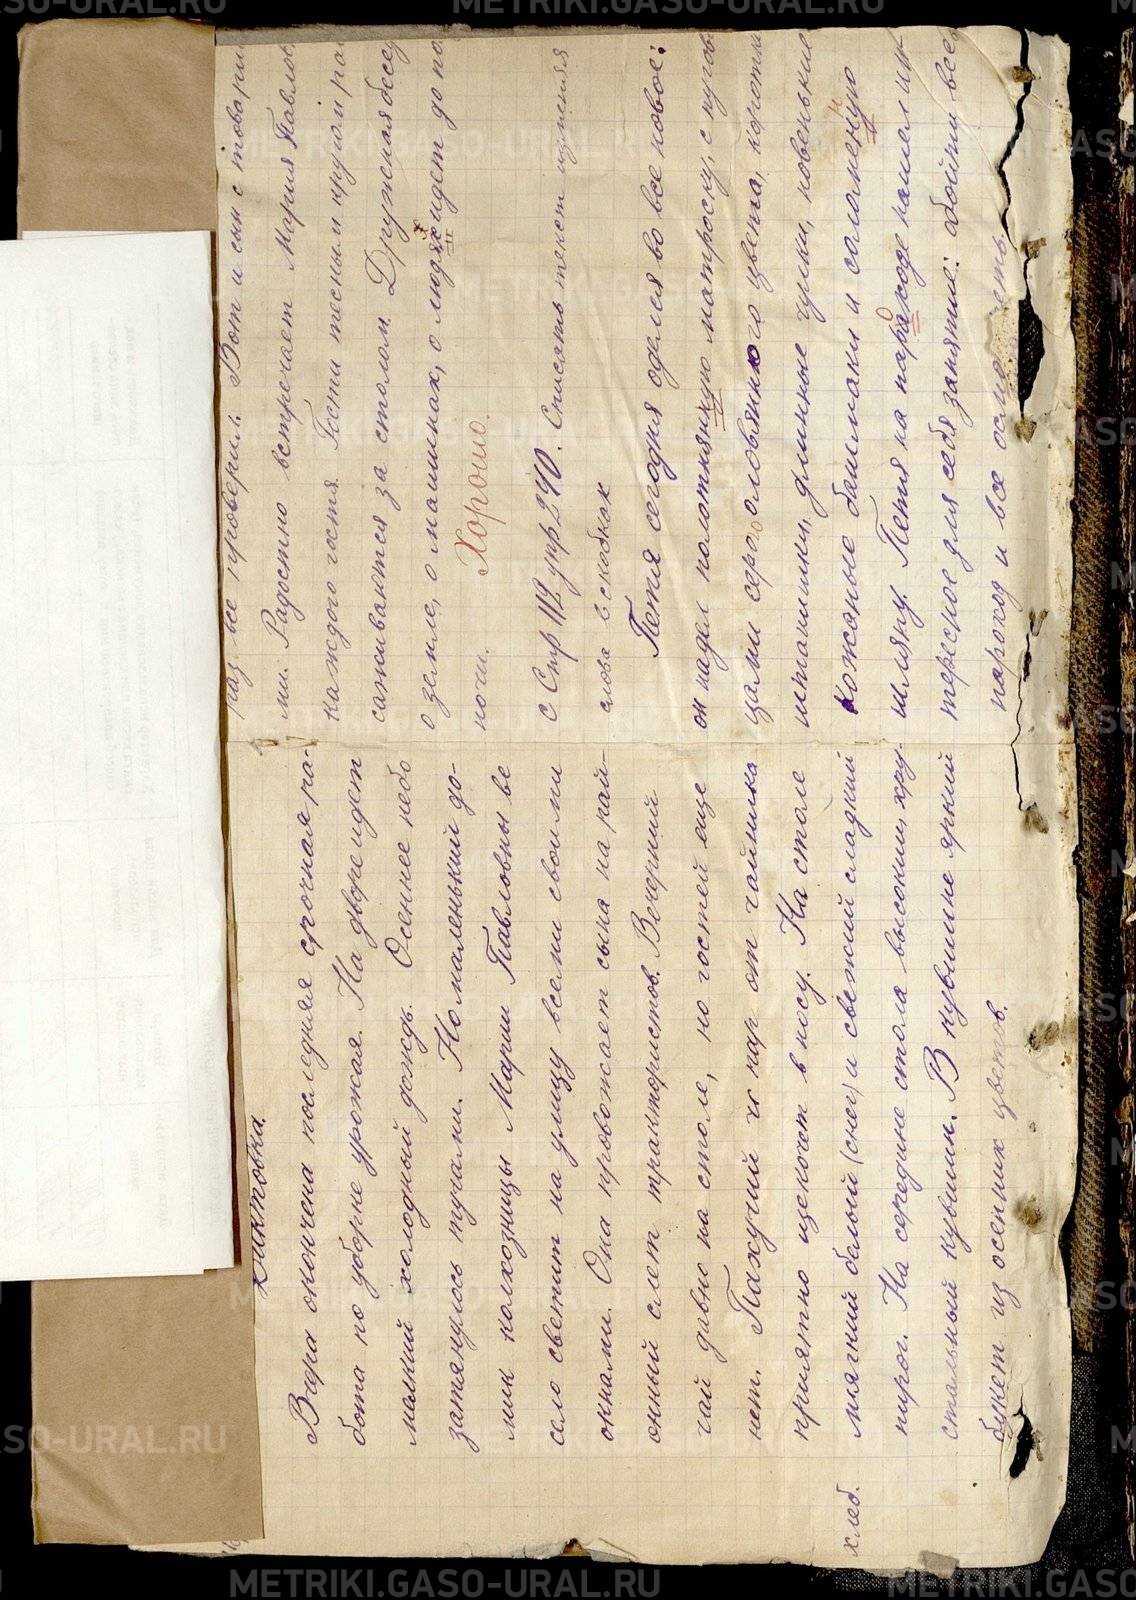 Диктовка.
Вчера окончена последняя срочная ра-
бота по уборке урожая. На дворе идет
мелкий холодный дождь. Осеннее небо
затянулось тучами. Но маленький до-
мик колхозницы Марии Павловны ве
село светит на улицу всеми своими
окнами. Она провожает сына на рай-
онный слет трактористов. Вечерний
чай давно на столе, но гостей еще
нет. Пахучий пар от чайника
приятно щекочет в носу. На столе
мягкий белый (снег) и свежий сладкий
хлеб.
пирог. На середине стола высокий, хру-
стальный кувшин. В кувшине яркий
букет из осенних цветов.
раз все проверил. Вот и сын с товари
ми. Радостно встречает Мария Павлов
каждого гостя. Гости тесным кругом ра
саживаются за столом. Дружная бесе
о земле, о машинах, о людях идет до по
ночи.
Хорошо.
с Стр 112 упр 240. Списать текст изменяя
слова в скобках
Петя сегодня оделся во все новое:
он надел полотняную матроску, с пугов
цами серо оловянного цвета, коротки
штанишки, длинные чулки, новенькие
кожаные башмаки и соломеную
шляпу. Петя на параходе нашел ин
тересное для себя занятие: обойти весь
пароход и все осмотреть.
METRIKI.GASO-URAL.RU